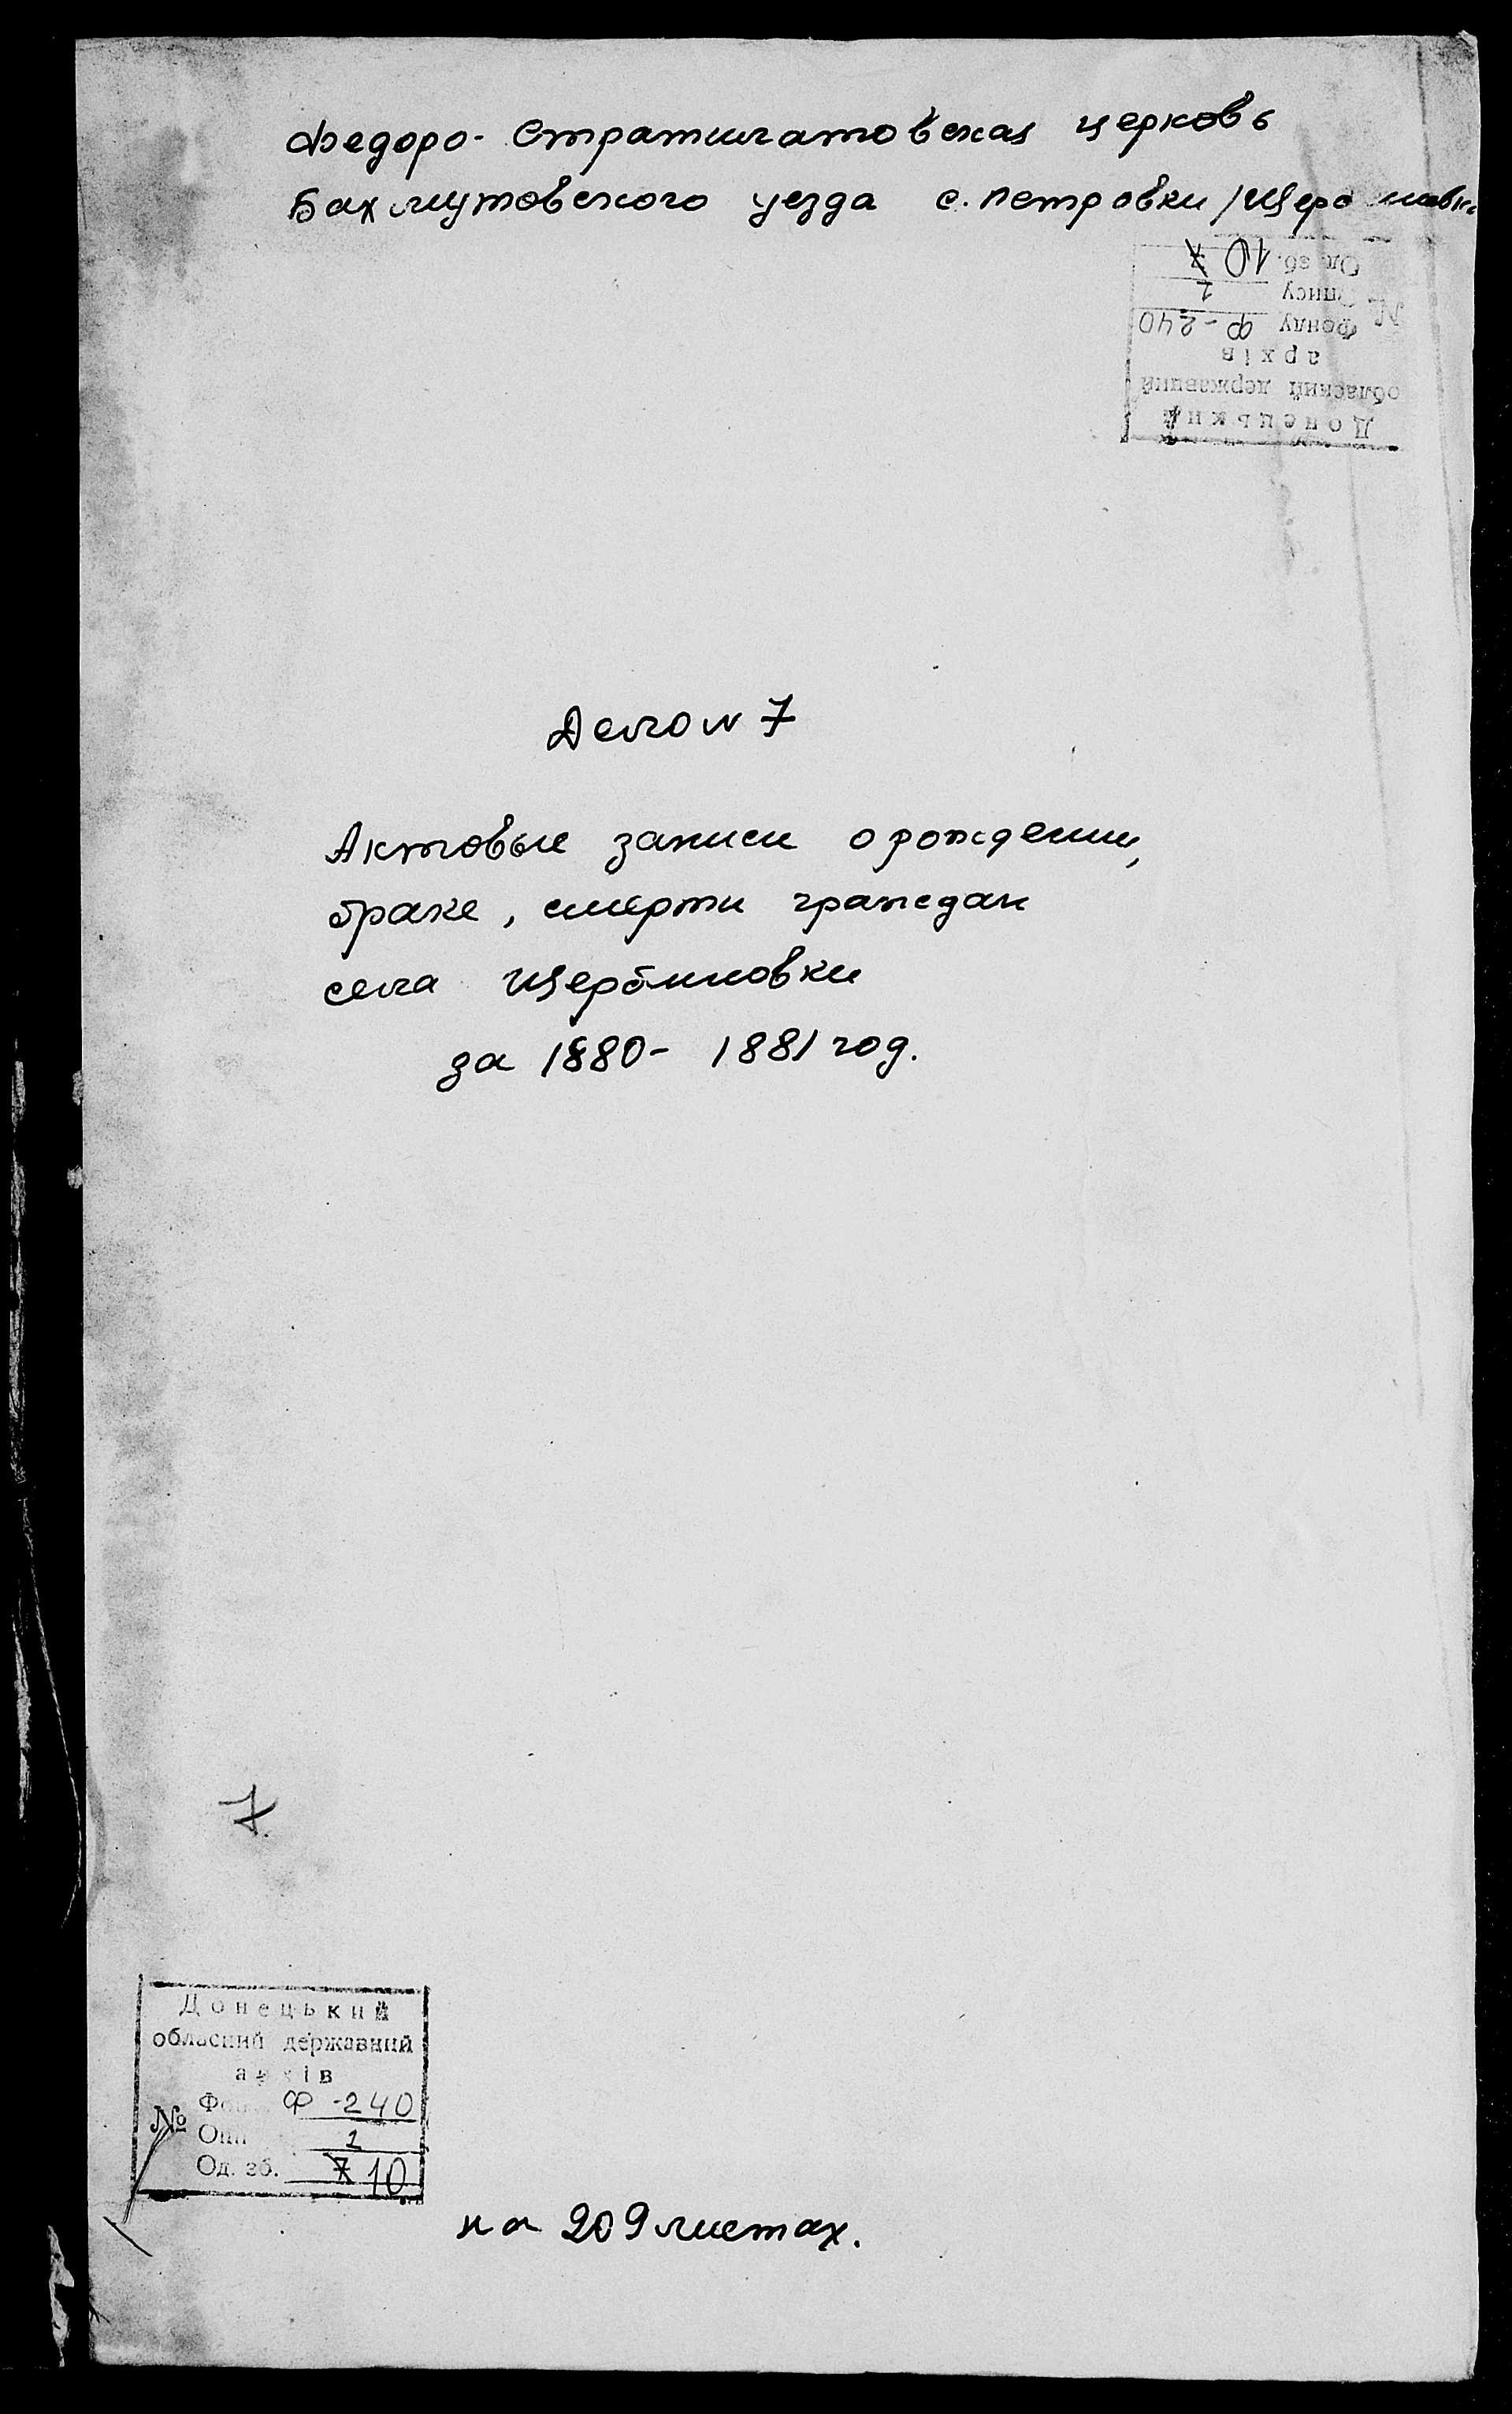 Федоро-Стратилатовская церковь
Бахмутовского уезда с. Петровки /Щербиновки
Од. зб. 10 7
Опису 1
№ Фонду Ф-240
архів
обласний державний
Донецький
Дело N 7
Актовые записи о рождении,
браке, смерти граждан
села Щербиновки
за 1880- 1881 год.
7.
Донецький
обласний державний
архів
№ Фон Ф-240
Опи 1
Од. зб. 7 10
на 209 листах.